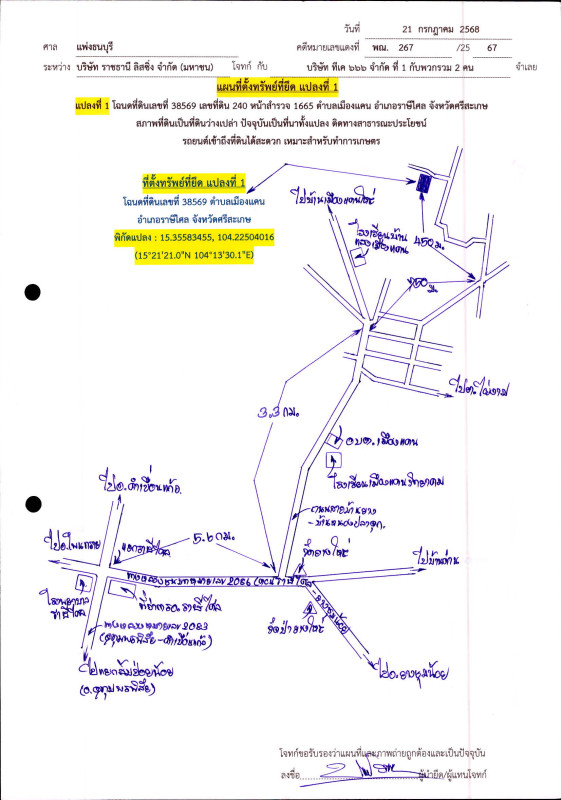 วันที่ 21 กรกฎาคม 2568
ศาล แพ่งธนบุรี คดีหมายเลขแดงที่ พณ. 267 /25 67
ระหว่าง บริษัท ราชธานี ลิสซิ่ง จำกัด (มหาชน) โจทก์ กับ บริษัท ทีเค ๖๖๖ จำกัด ที่ 1 กับพวกรวม 2 คน จำเลย
แผนที่ตั้งทรัพย์ที่ยึด แปลงที่ 1
แปลงที่ 1 โฉนดที่ดินเลขที่ 38569 เลขที่ดิน 240 หน้าสำรวจ 1665 ตำบลเมืองแคน อำเภอราษีไศล จังหวัดศรีสะเกษ
สภาพที่ดินเป็นที่ดินว่างเปล่า ปัจจุบันเป็นที่นาทั้งแปลง ติดทางสาธารณะประโยชน์
รถยนต์เข้าถึงที่ดินได้สะดวก เหมาะสำหรับทำการเกษตร
ที่ตั้งทรัพย์ที่ยึด แปลงที่ 1
โฉนดที่ดินเลขที่ 38569 ตำบลเมืองแคน
อำเภอราษีไศล จังหวัดศรีสะเกษ
พิกัดแปลง : 15.35583455, 104.22504016
(15°21'21.0"N 104°13'30.1"E)
ไปบ้านเมืองแคนใหญ่
โรงเรียนบ้าน
450 ม.
ไปต.ไผ่งาม
3.3 กม.
อบต.เมืองแคน
โรงเรียนเมืองแคนวิทยาคม
ไปอ.
5.6 กม.
-บ้านหนองปลาดุก.
วัดยางใหญ่
แยกราษีไศล
ทางหลวงหมายเลข 2086
โรงพยาบาล
ราษีไศล
ที่ว่าการอ.ราษีไศล
ทางหลวงหมายเลข 2083
วัดป่ายางใหญ่
ไปแยกส้มป่อยน้อย
(อ.อุทุมพรพิสัย)
ไปอ.ยางชุมน้อย
โจทก์ขอรับรองว่าแผนที่และภาพถ่ายถูกต้องและเป็นปัจจุบัน
ลงชื่อ ผู้นำยึด/ผู้แทนโจทก์